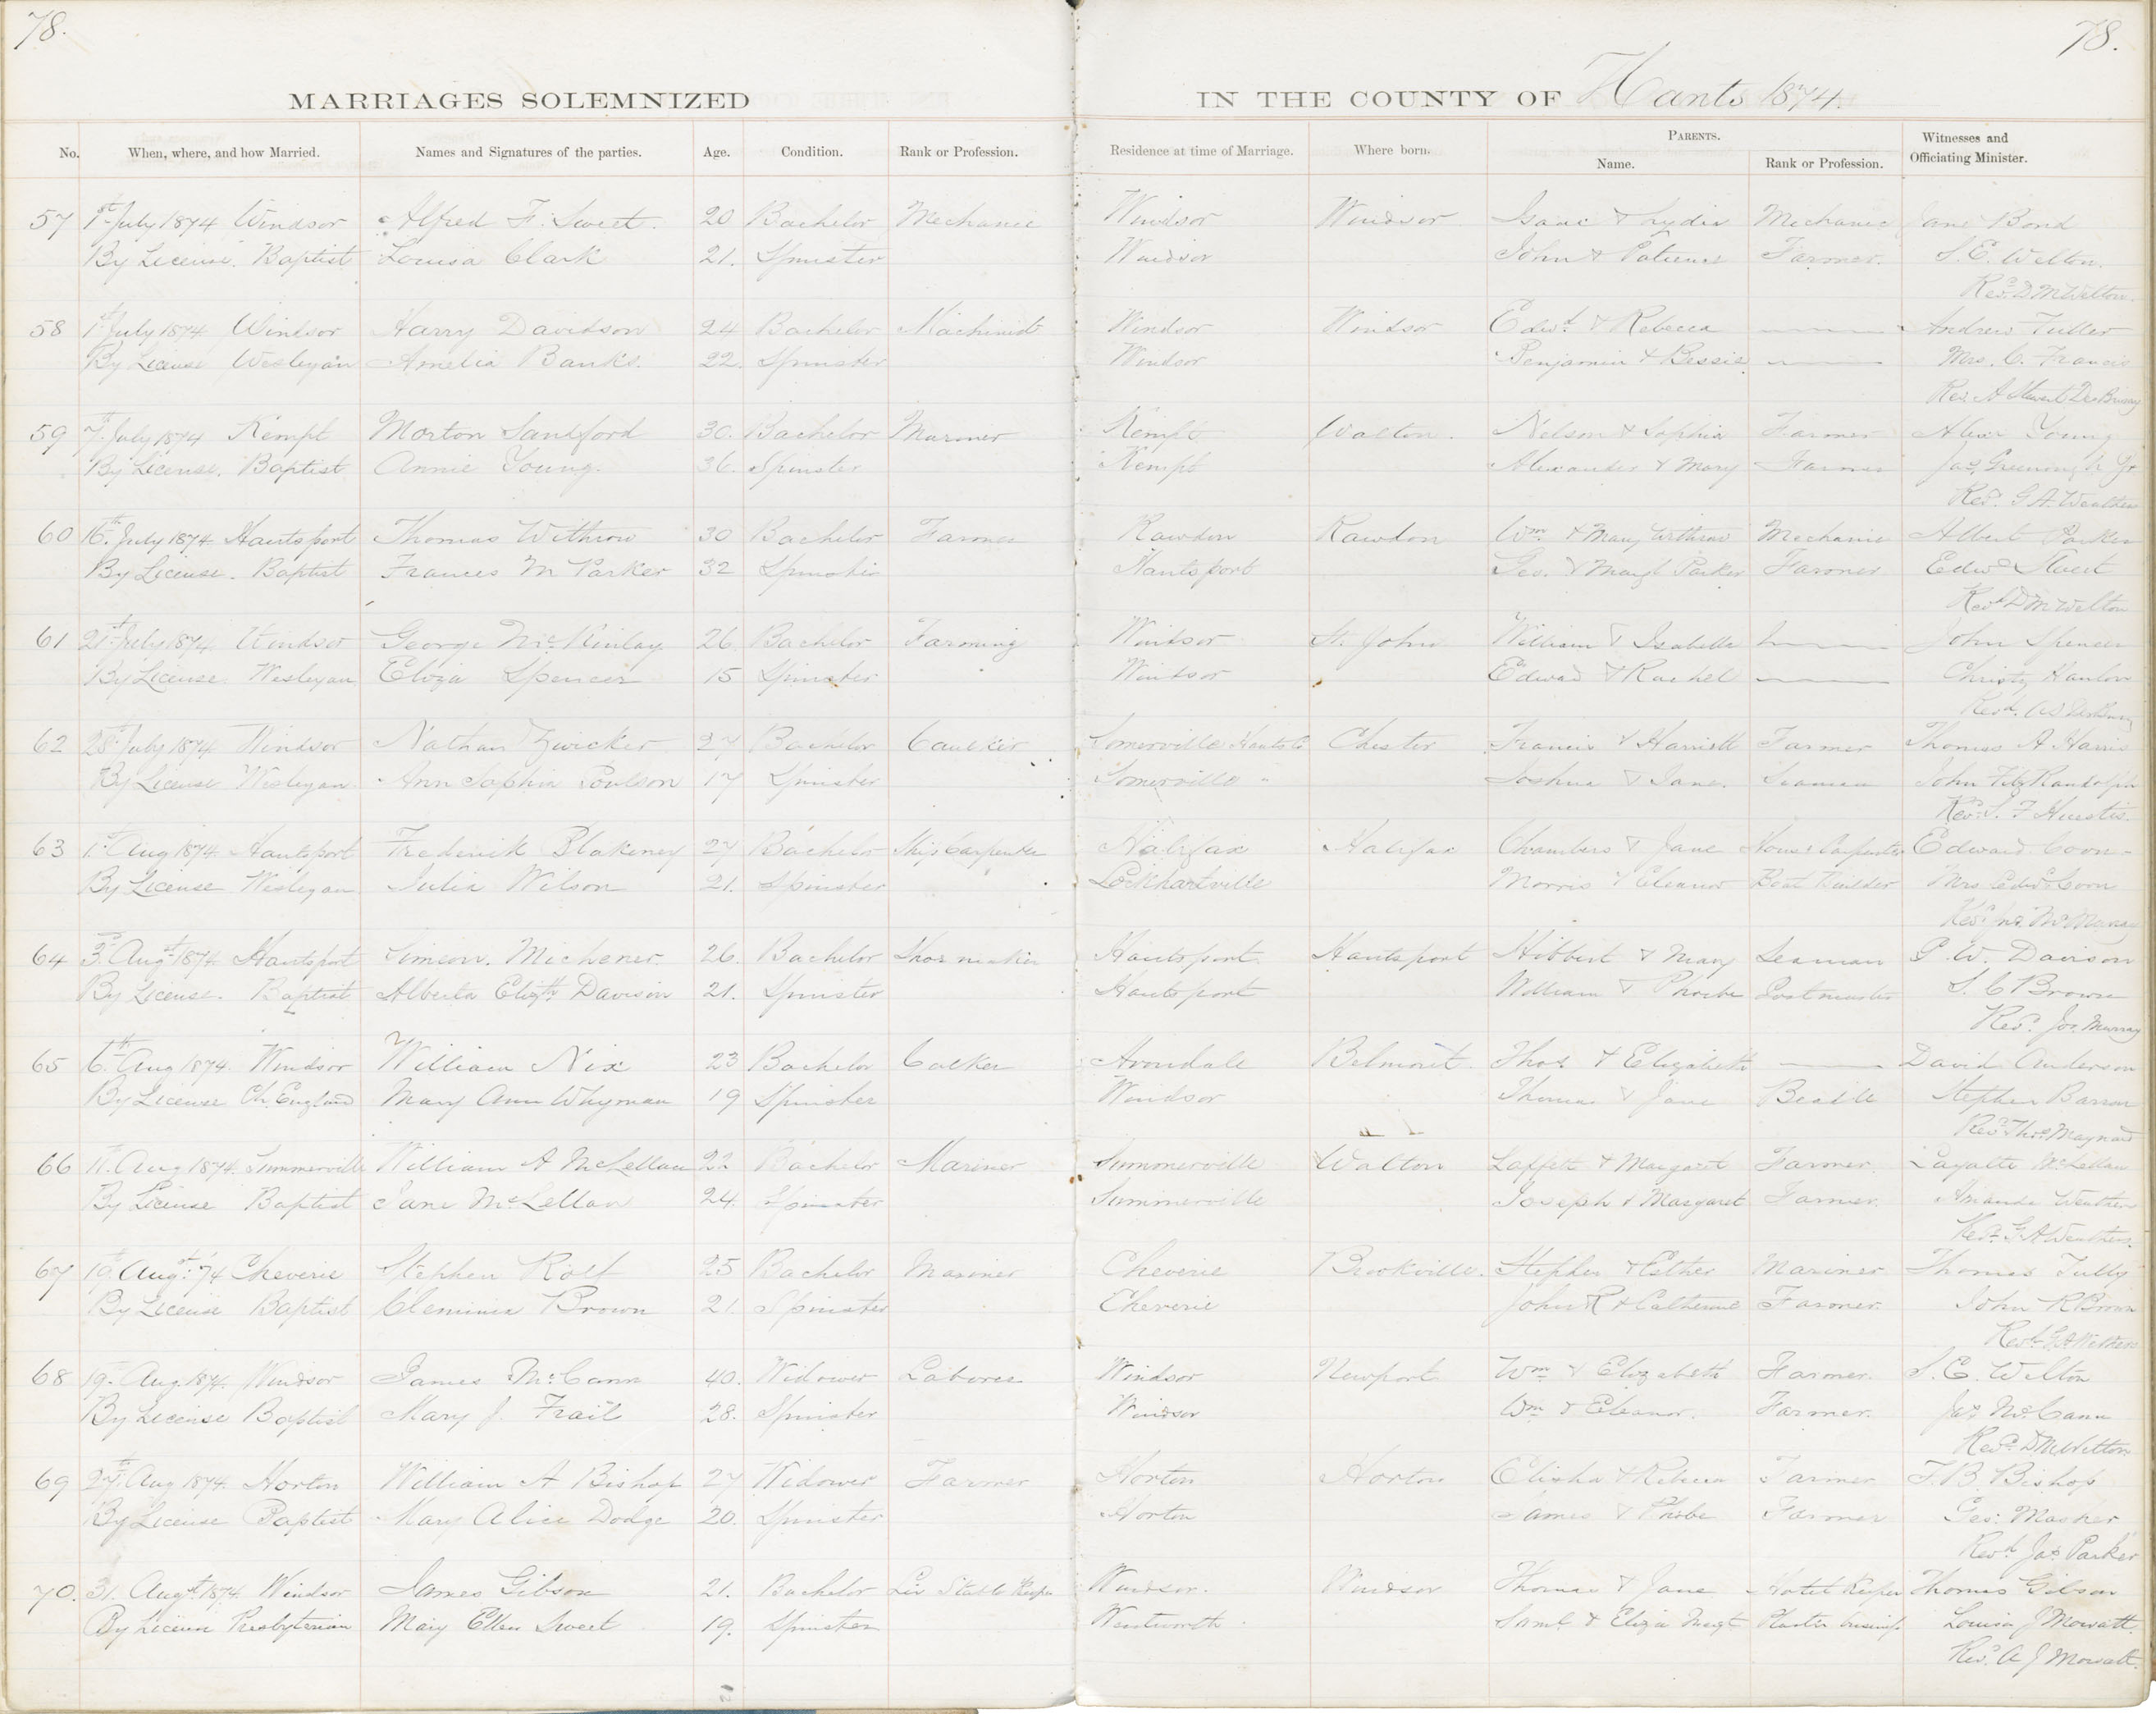 78.
78.
MARRIAGES SOLEMNIZED IN THE COUNTY OF Hants 1874.
No. When, where, and how Married. Names and Signatures of the parties. Age. Condition. Rank or Profession. Residence at time of Marriage. Where born. PARENTS. Name. Rank or Profession. Witnesses and Officiating Minister.
57 1st July 1874 Windsor Alfred F. Sweet. 20 Bachelor Mechanic Windsor Windsor Isaac & Lydia Mechanic Jane Bond
By License. Baptist Louisa Clark 21. Spinster Windsor John & Patience Farmer. S. E. Welton.
Revd. D M Welton.
58 1st July 1874 Windsor Harry Davidson 24 Bachelor Machinist Windsor Windsor Edwd. & Rebecca Andrew Fuller
By License Wesleyan Amelia Banks. 22. Spinster Windsor Benjamin & Bessie Mrs. C. Francis
Rev A Stewart DesBrisay
59 7th July 1874 Kempt Morton Sandford 30. Bachelor Mariner Kempt Walton. Nelson & Sophia Farmer Alexr Young
By License. Baptist Annie Young. 36. Spinster Kempt Alexander & Mary Farmer Jas. Greenough Jr
Revd. G. A. Weathers
60 16th July 1874 Hantsport Thomas Withrow 30 Bachelor Farmer Rawdon Rawdon Wm & Mary Withrow Mechanic Albert Parker
By License. Baptist Frances M Parker 32 Spinster Hantsport Geo. & Margt Parker Farmer Edwd Sweet
Revd D M Welton
61 21st July 1874 Windsor George McKinlay 26. Bachelor Farming Windsor St. John William & Isabella John Spencer
By License Wesleyan Eliza Spencer 15 Spinster Windsor Edward & Rachel Christy Hanlon
Revd. A S DesBrisay
62 28th July 1874 Windsor Nathan Zwicker 27 Bachelor Caulker Somerville Hants Co Chester Francis & Harriett Farmer Thomas A Harris
By License Wesleyan. Ann Sophia Poulson 17 Spinster Somerville " Joshua & Jane. Seaman John FitzRandolph
Revd. S. F Huestis.
63 1st Aug 1874 Hantsport Frederick Blakeney 27 Bachelor Ship Carpenter Halifax Halifax Chambers & Jane House Carpenter Edward Coon
By License Wesleyan Julia Wilson 21. Spinster Lockhartville Morris & Eleanor Boat Builder Mrs Edwd Coon
Revd Jno. McMurray
64 3d Augst 1874 Hantsport Simeon. Michener 26. Bachelor Shoe maker Hantsport. Hantsport Hibbert & Mary Seaman P. W. Davison
By License. Baptist Alberta Elizth Davison 21. Spinster Hantsport William & Phoebe Postmaster S. C Brown
Revd. Jos. Murray
65 6th Aug 1874. Windsor William Nix 23 Bachelor Calker Avondale Belmont. Thos & Elizabeth David Anderson
By License Ch. England Mary Ann Whyman 19 Spinster Windsor Thomas & Jane Stephen Barron
Revd. Thos. Maynard
66 11. Aug 1874. Summerville William A McLellan 22 Bachelor Mariner Summerville Walton Laffett & Margaret Farmer. McLellan
By License Baptist Jane McLellan 24. Spinster Summerville Joseph & Margaret Farmer. Amanda Weathers
Revd. G A Weathers.
67 19th Augst. '74 Cheverie Stephen Rolf 25 Bachelor Mariner Cheverie Brookville. Stephen & Esther Mariner Thomas Tully
By License Baptist Cleminia Brown 21. Spinster Cheverie John R & Catherine Farmer. John R Brown
Revd.
68 19th Aug. 1874. Windsor James McCann 40. Widower Laborer Windsor Newport Wm & Elizabeth Farmer. S. E. Welton
By License Baptist Mary J. Trail 28. Spinster Windsor Wm & Eleanor. Farmer. Jas McCann
Revd. D M Welton
69 27th Aug 1874. Horton William A Bishop 27 Widower Farmer Horton Horton Elisha & Rebecca Farmer T. B. Bishop
By License Baptist Mary Alice Dodge 20. Spinster Horton James & Phebe Farmer Geo: Masher
Revd. Jas Parker
70. 31. Augst 1874. Windsor James Gibson 21. Bachelor Liv Stable Keeper Windsor. Windsor Thomas & Jane Hotel Keeper Thomas Gibson
By License Presbyterian Mary Ellen Sweet 19. Spinster Wentworth. Saml & Eliza Margt Plaster business Louisa J Mowatt.
Revd. A J Mowatt.